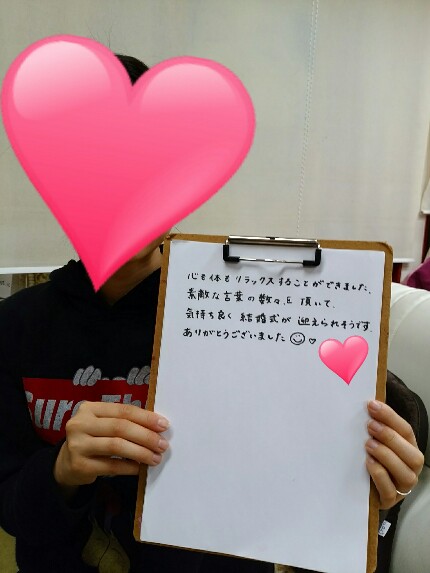 心も体もリラックスすることができました。
素敵な言葉の数々を頂いて、
気持ち良く結婚式が迎えられそうです。
ありがとうございました☺♡
Sure Th